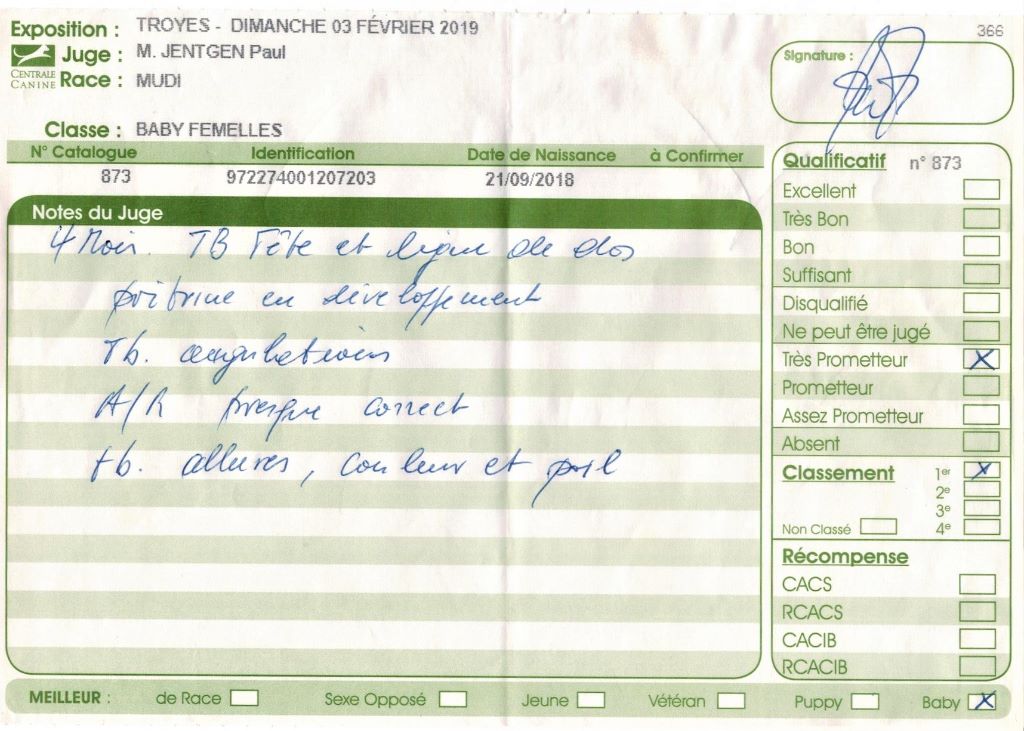 Exposition : TROYES - DIMANCHE 03 FÉVRIER 2019
366
CENTRALE CANINE
Juge : M. JENTGEN Paul
Race : MUDI
Signature :
Classe : BABY FEMELLES
N° Catalogue Identification Date de Naissance à Confirmer
873 972274001207203 21/09/2018
Notes du Juge
4 Mois. TB Tête et ligne de dos
poitrine en développement
Tb. angulations
A/R presque correct
tb. allures, couleur et poil
Qualificatif n° 873
Excellent
Très Bon
Bon
Suffisant
Disqualifié
Ne peut être jugé
Très Prometteur X
Prometteur
Assez Prometteur
Absent
Classement 1er X
2e
3e
Non Classé 4e
Récompense
CACS
RCACS
CACIB
RCACIB
MEILLEUR : de Race Sexe Opposé Jeune Vétéran Puppy Baby X